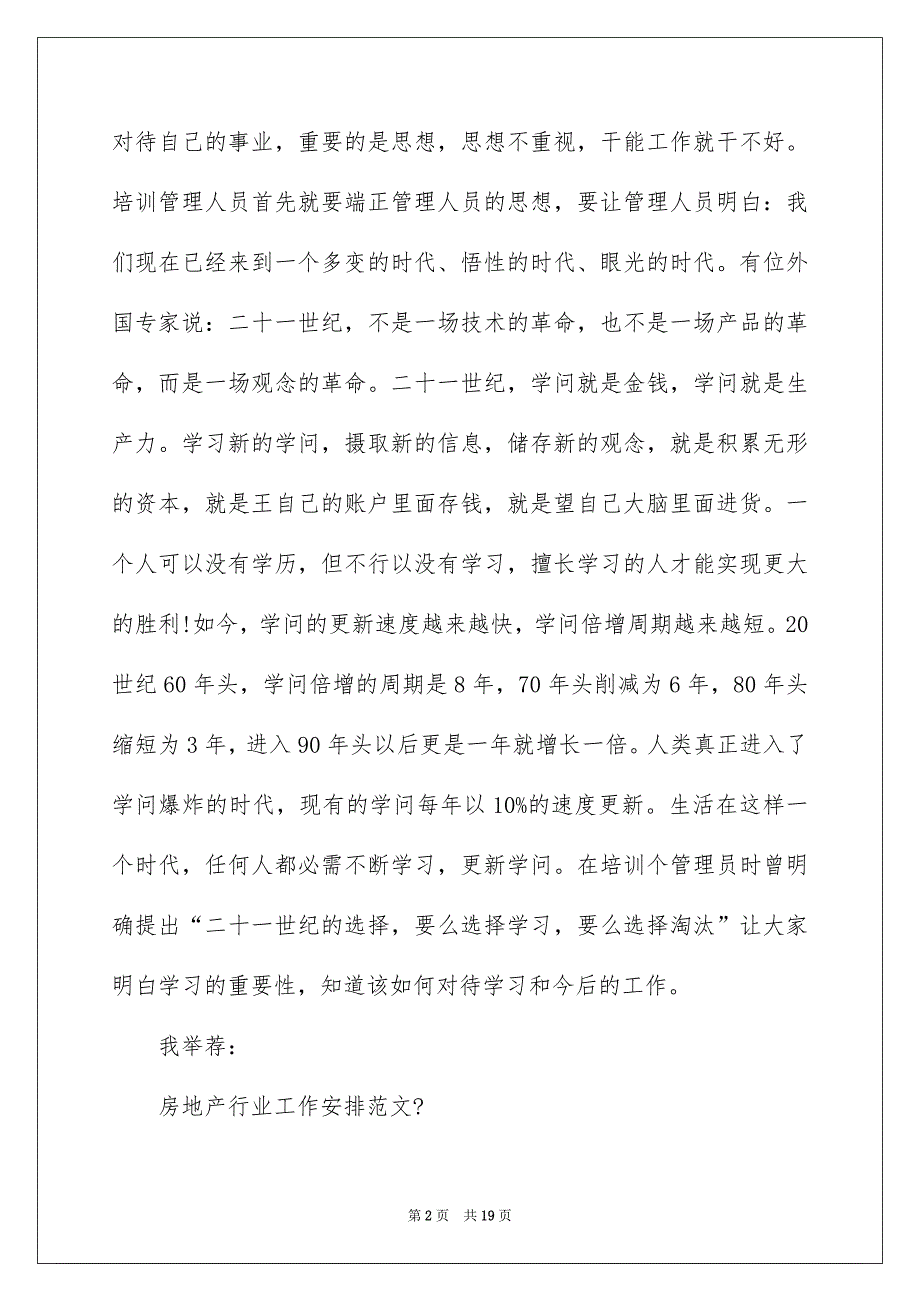 对待自己的事业，重要的是思想，思想不重视，干能工作就干不好。
培训管理人员首先就要端正管理人员的思想，要让管理人员明白：我
们现在已经来到一个多变的时代、悟性的时代、眼光的时代。有位外
国专家说：二十一世纪，不是一场技术的革命，也不是一场产品的革
命，而是一场观念的革命。二十一世纪，学问就是金钱，学问就是生
产力。学习新的学问，摄取新的信息，储存新的观念，就是积累无形
的资本，就是王自己的账户里面存钱，就是望自己大脑里面进货。一
个人可以没有学历，但不行以没有学习，擅长学习的人才能实现更大
的胜利!如今，学问的更新速度越来越快，学问倍增周期越来越短。20
世纪 60 年头，学问倍增的周期是 8 年，70 年头削减为 6 年，80 年头
缩短为 3 年，进入 90 年头以后更是一年就增长一倍。人类真正进入了
学问爆炸的时代，现有的学问每年以 10%的速度更新。生活在这样一
个时代，任何人都必需不断学习，更新学问。在培训个管理员时曾明
确提出“二十一世纪的选择，要么选择学习，要么选择淘汰”让大家
明白学习的重要性，知道该如何对待学习和今后的工作。
我举荐：
房地产行业工作安排范文?
第 2 页 共 19 页